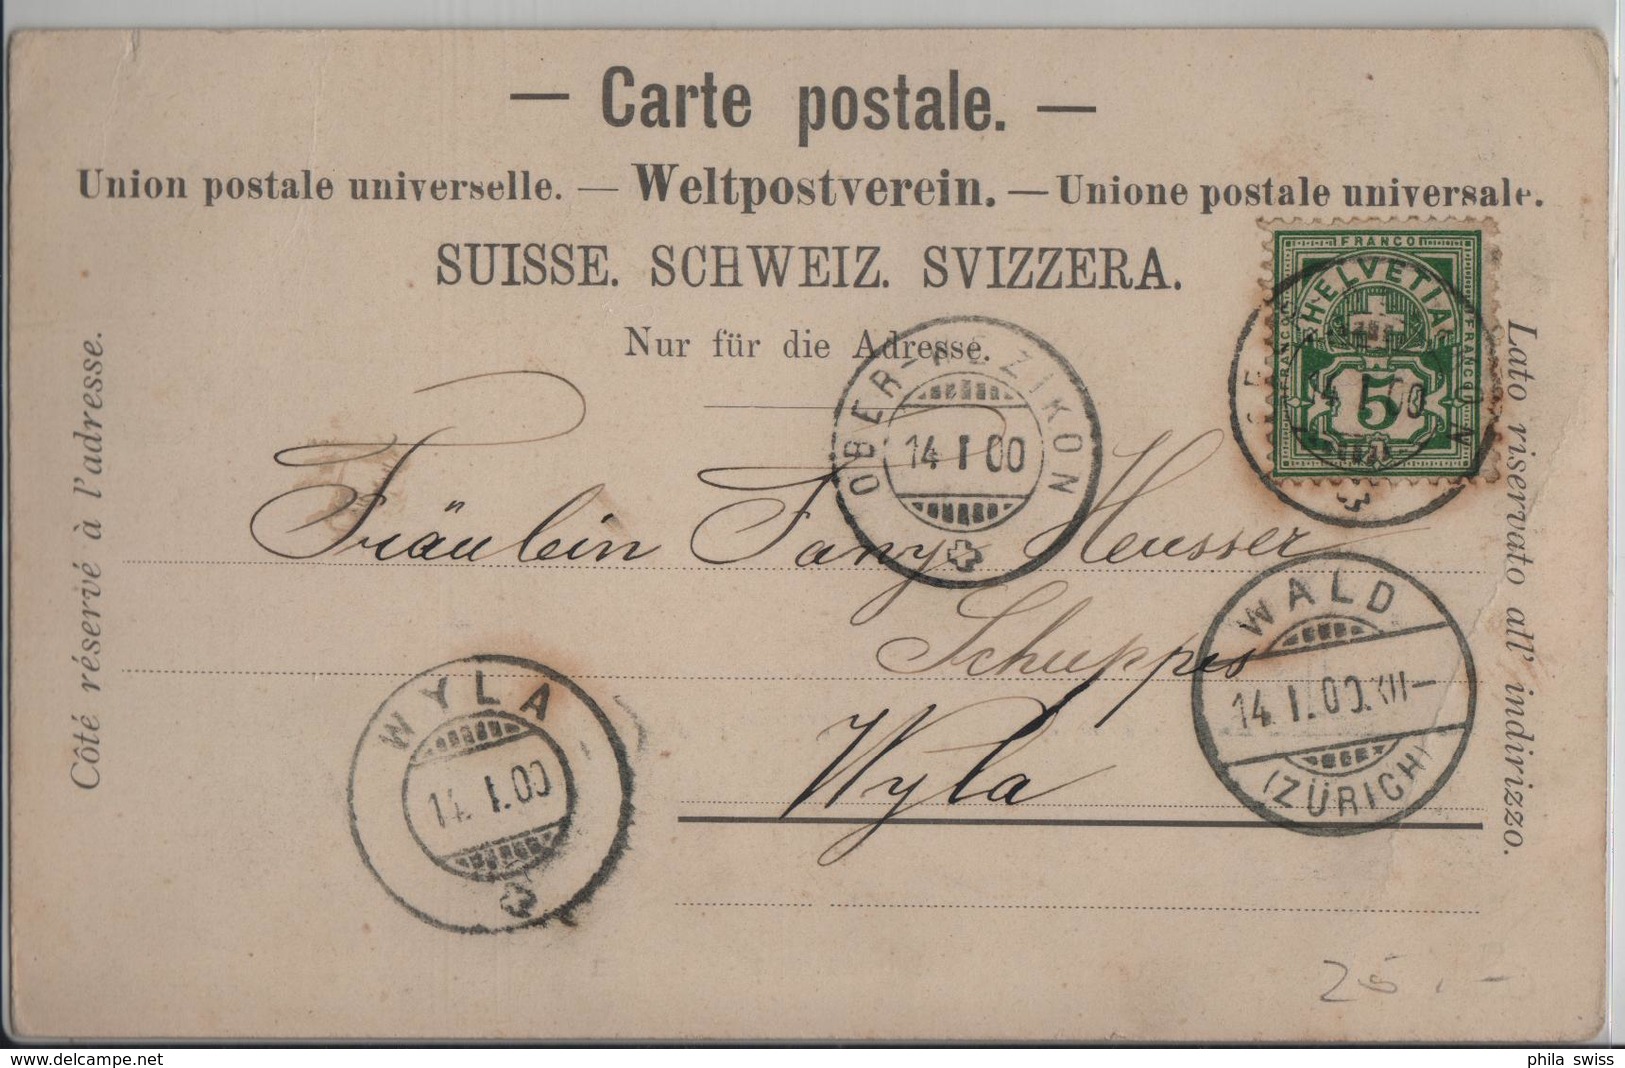 — Carte postale. —
Union postale universelle. — Weltpostverein. — Unione postale universale.
SUISSE. SCHWEIZ. SVIZZERA.
Nur für die Adresse.
Côté réservé à l'adresse.
Lato riservato all' indirizzo.
FRANCO
HELVETIA
FRANCO
FRANCO
5
14 I 00
14 I 00
Fräulein Fany Heusser
Schuppis
Wyla
WALD
14. I. 00. XII—
(ZÜRICH)
WYLA
14. I. 00
25.-
phila swiss
www.delcampe.net